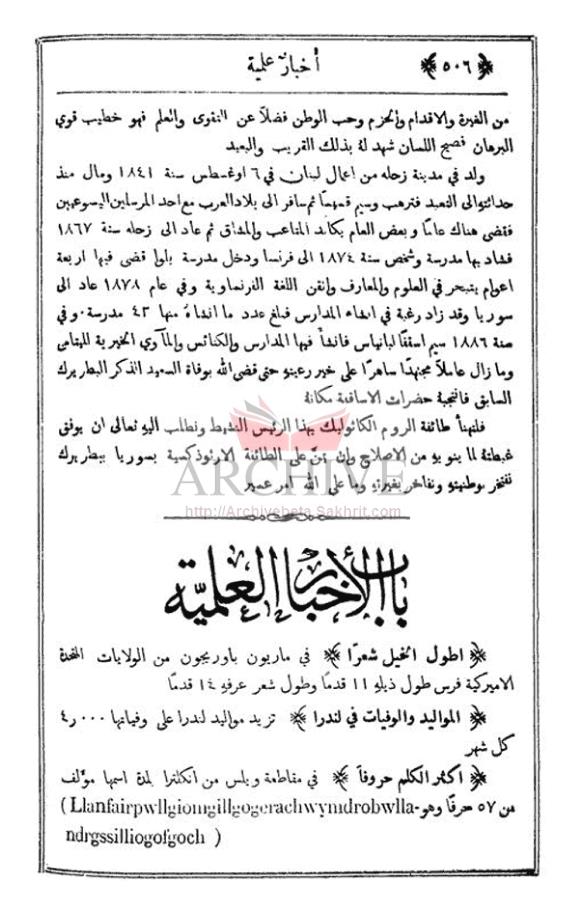 ﴿ ٥٠٦ ﴾ أخبار علمية
من الغيرة والاقدام والحزم وحب الوطن فضلًا عن التقوى والعلم فهو خطيب قوي
البرهان فصيح اللسان شهد له بذلك القريب والبعيد
ولد في مدينة زحله من اعمال لبنان في ٦ اوغسطس سنة ١٨٤١ ومال منذ
حداثته الى التعبد فترهب وسيم قسيسًا ثم سافر الى بلاد العرب مع احد المرسلين اليسوعيين
فقضى هناك عامًا وبعض العام يكابد المتاعب والمشاق ثم عاد الى زحله سنة ١٨٦٧
فشاد بها مدرسة وشخص سنة ١٨٧٤ الى فرنسا ودخل مدرسة بلوا قضى فيها اربعة
اعوام يتبحر في العلوم والمعارف واتقن اللغة الفرنساوية وفي عام ١٨٧٨ عاد الى
سوريا وقد زاد رغبة في انشاء المدارس فبلغ عدد ما انشأه منها ٤٣ مدرسة. وفي
سنة ١٨٨٦ سيم اسقفًا لبانياس فانشأ فيها المدارس والكنائس والمآوي الخيرية لليتامى
وما زال عاملًا مجتهدًا ساهرًا على خير رعيته حتى قضى الله بوفاة السعيد الذكر البطريرك
السابق فانتخبه حضرات الاساقفة مكانه
فلتهنأ طائفة الروم الكاثوليك بهذا الرئيس النشيط ونطلب اليه تعالى ان يوفق
غبطته لما ينويه من الاصلاح وان يمنّ على الطائفة الارثوذكسية بسوريا ببطريرك
تفتخر بوطنيته وتفاخر بغيرته وما على الله امر عسير
ARCHIVE
http://Archivebeta.Sakhrit.com
باب الأخبار العلمية
﴿ اطول الخيل شعرًا ﴾ في ماريون باوريجون من الولايات المتحدة
الاميركية فرس طول ذيله ١١ قدمًا وطول شعر عرفه ١٤ قدمًا
﴿ المواليد والوفيات في لندرا ﴾ تزيد مواليد لندرا على وفياتها ٤٫٠٠٠
كل شهر
﴿ اكثر الكلم حروفًا ﴾ في مقاطعة ويلس من انكلترا بلدة اسمها مؤلف
من ٥٧ حرفًا وهو (Llanfairpwllgiomgillgogerachwymdrobwlla-
ndrgssilliogofgoch )